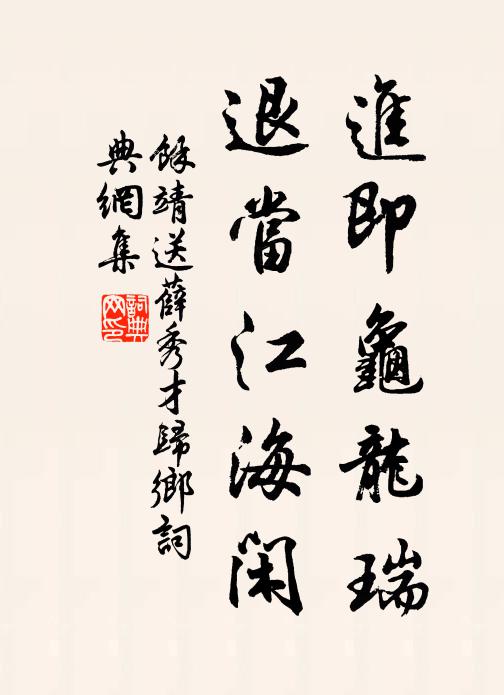 進即龜龍瑞
退當江海閑
餘靖送薛秀才歸鄉詞
典網集
詞典网印